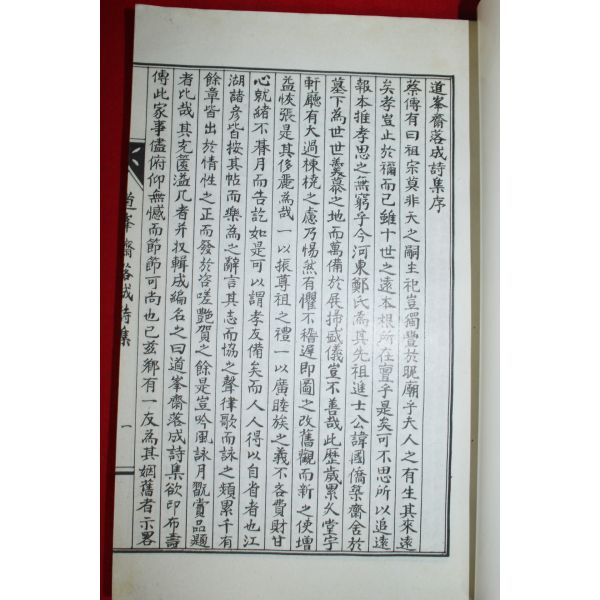 道峯齋落成詩集序
蔡傳有曰祖宗莫非天之嗣主祀豈獨豐於昵廟乎夫人之有生其來遠
矣孝豈止於禰而已雖十世之遠本根所在亶乎是矣可不思所以追遠
報本推孝思之無窮乎今河東鄭氏為其先祖進士公諱國僑築齋舍於
墓下為世世羹慕之地而萬備於展掃盛儀豈不善哉此歷歲累久堂宇
軒廳有大過棟橈之慮乃惕然有懼不稽遲即圖之改舊觀而新之使增
益恢張是其侈麗為哉一以振尊祖之禮一以廣睦族之義不吝費財甘
心就緒不朞月而告訖如是可以謂孝友備矣而人人得以自省者也江
湖諸彦皆按其帖而樂為之辭言其志而協之聲律歌而詠之類累千有
餘章皆出於情性之正而發於咨嗟艷賀之餘是豈吟風詠月翫賞品題
者比哉其充篋溢几者并収輯成編名之曰道峯齋落成詩集欲印布壽
傳此家事儘俯仰無憾而節節可尚也已玆鄉有一友為其姻舊者示畧
道峯齋落成詩集
一